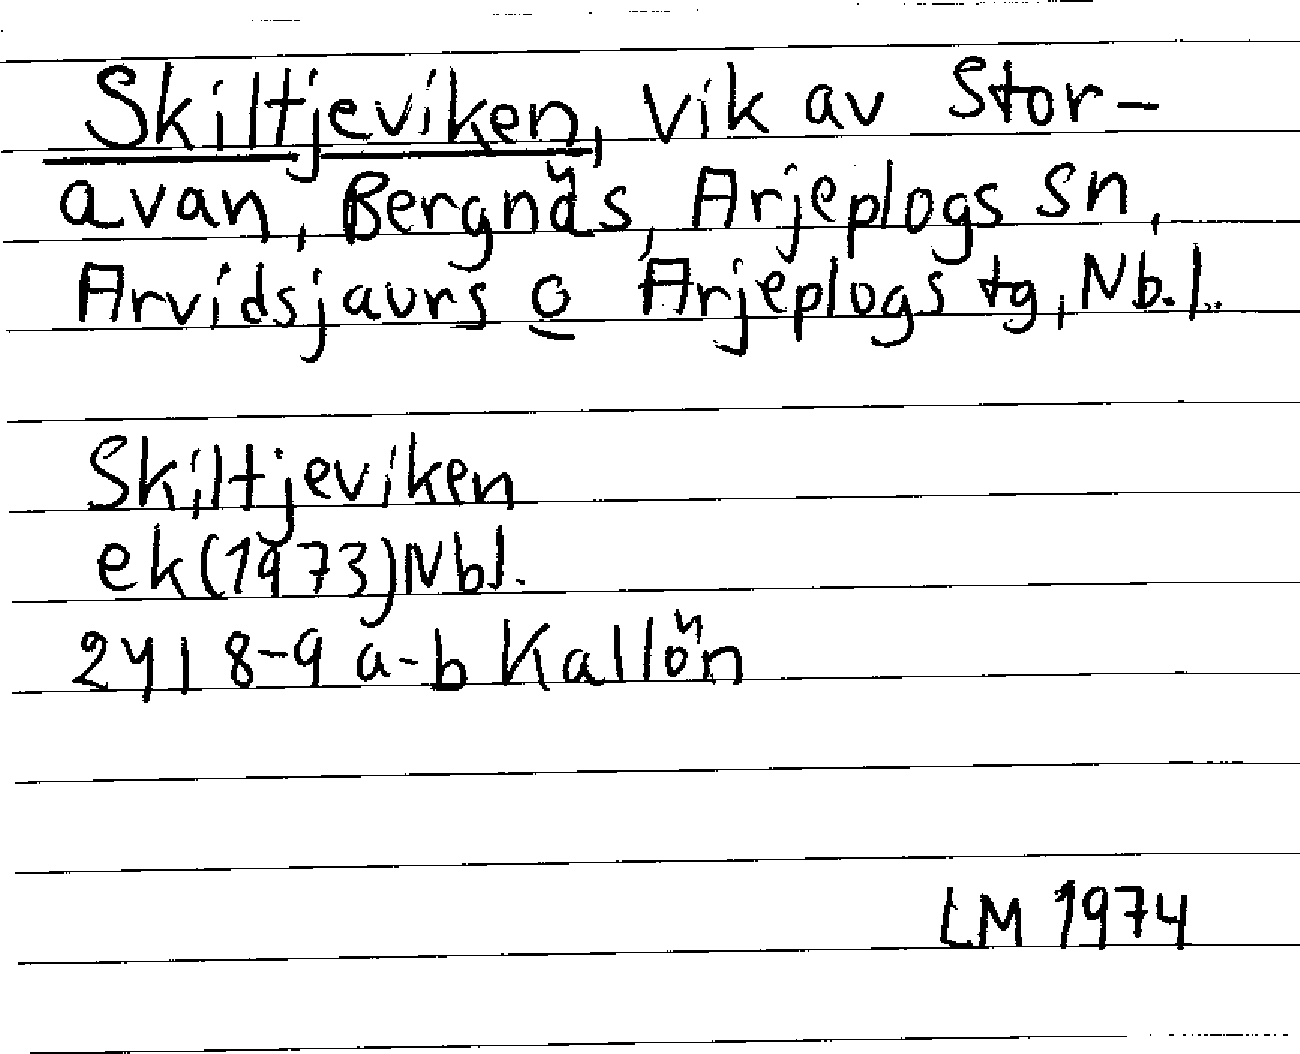 Skiltjeviken, vik av Stor-
avan, Bergnäs, Arjeplogs sn,
Arvidsjaurs o Arjeplogs tg, Nb.l.
Skiltjeviken
ek(1973)Nbl.
24I 8-9 a-b Kallön
LM 1974